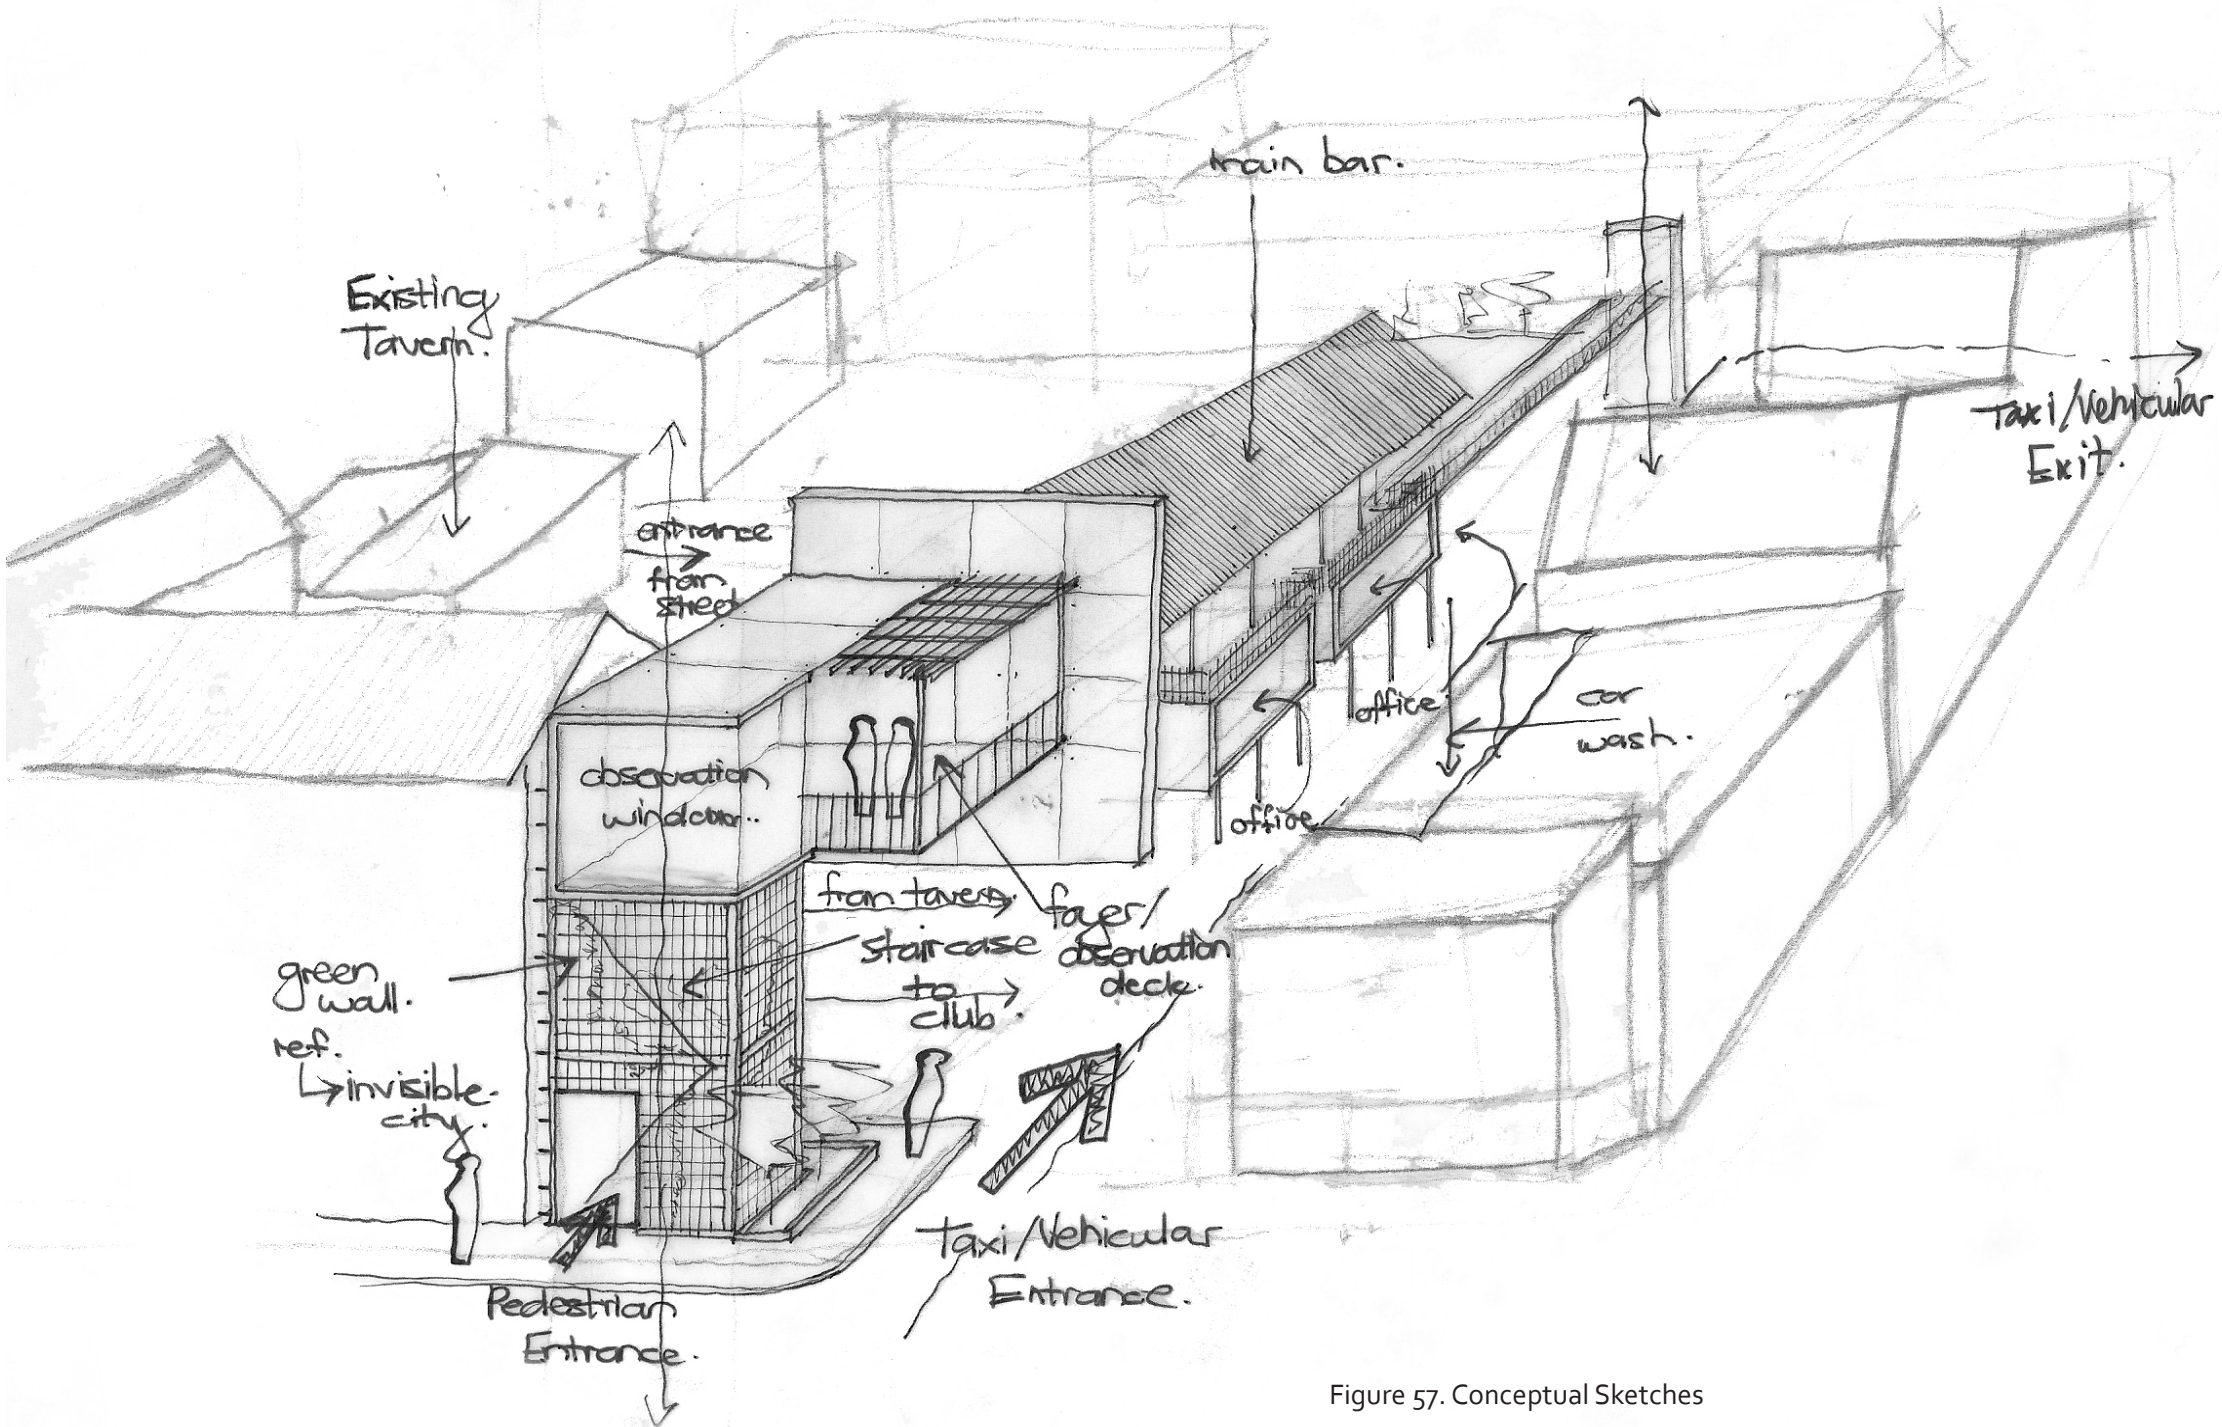 main bar.
Existing
Tavern.
Taxi/Vehicular
Exit.
entrance
from
street
office
car
wash.
observation
window..
office
from tavern.
foyer/
observation
deck.
staircase
to
club.
green
wall.
ref.
↳invisible
city.
Taxi/Vehicular
Entrance.
Pedestrian
Entrance.
Figure 57. Conceptual Sketches